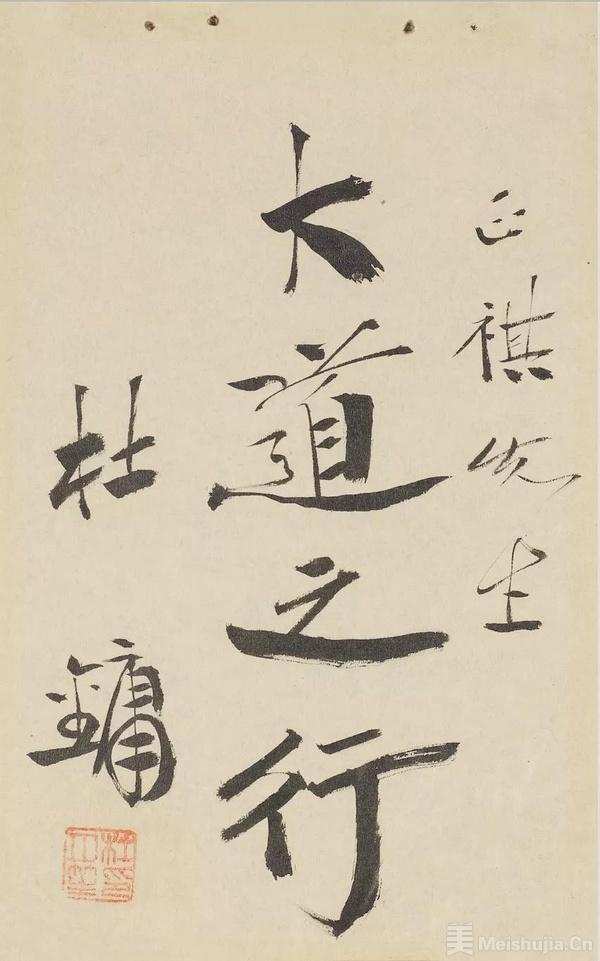 正祺先生
大道之行
杜鏞
美 Meishujia.Cn